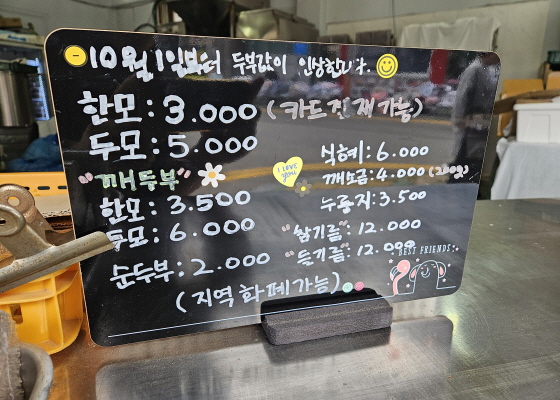 10월 1일부터 두부값이 인상합니다.
한모: 3.000 (카드 결재가능)
두모: 5.000
"깨두부"
한모: 3.500
두모: 6.000
순두부: 2.000
(지역화페가능)
I LOVE
식혜: 6.000
깨소금: 4.000 (200g)
누룽지: 3.500
"참기름": 12.000
"들기름": 12.000
BEST FRIENDS